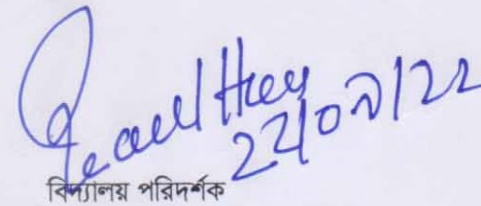 ২২/০৯/২২
বিদ্যালয় পরিদর্শক